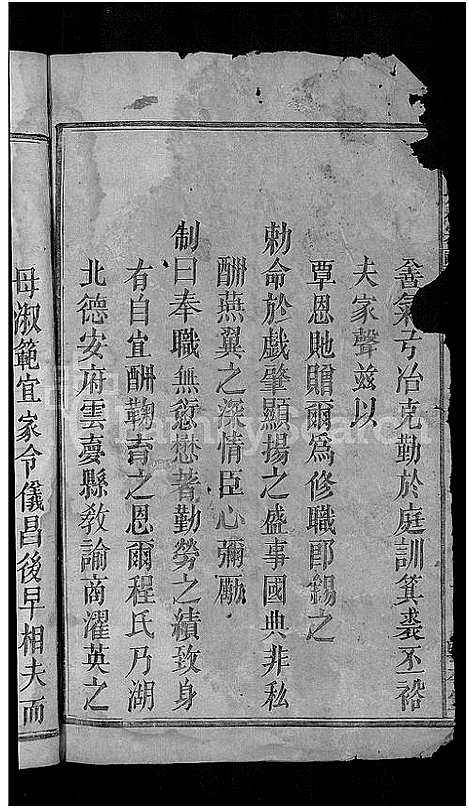 善氣芳冶克勤於庭訓箕裘丕裕
夫家聲茲以
覃恩貤贈爾為修職郎錫之
勅命於戲肇顯揚之盛事國典非私
酬燕翼之深情臣心彌勵
制曰奉職無愆懋著勤勞之績致身
有自宜酬鞠育之恩爾程氏乃湖
北德安府雲夢縣敎諭商濯英之
母淑範宜家令儀昌後早相夫而
FamilySearch